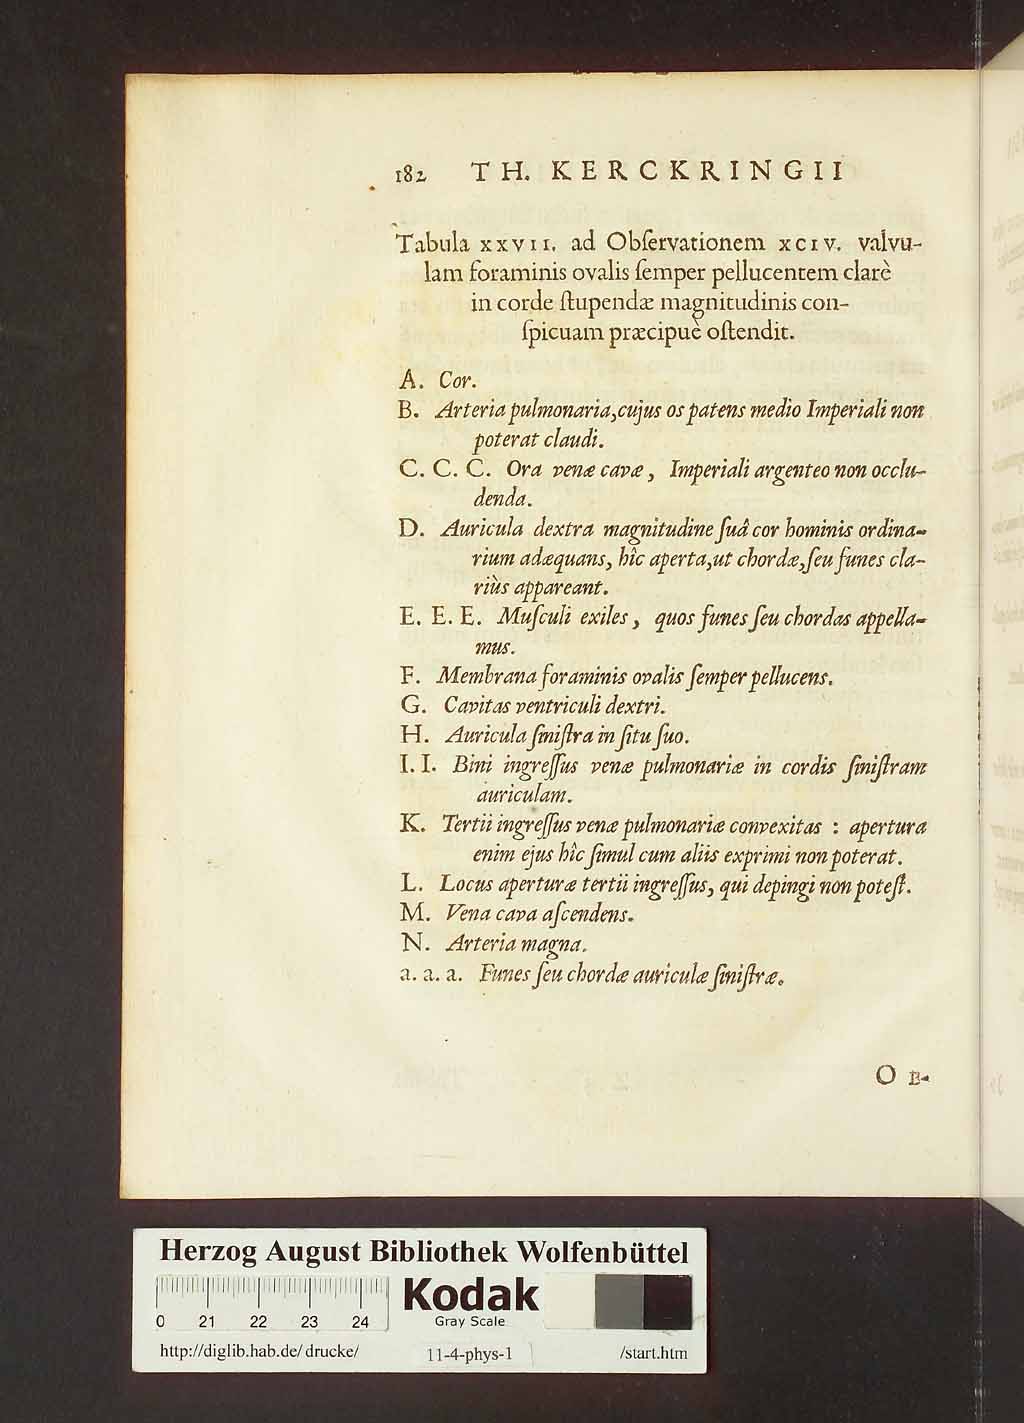 182 TH. KERCKRINGII
Tabula XXVII. ad Obſervationem XCIV. valvu-
lam foraminis ovalis ſemper pellucentem clarè
in corde ſtupendæ magnitudinis con-
ſpicuam præcipuè oſtendit.
A. Cor.
B. Arteria pulmonaria, cujus os patens medio Imperiali non
poterat claudi.
C. C. C. Ora venæ cavæ, Imperiali argenteo non occlu-
denda.
D. Auricula dextra magnitudine ſuâ cor hominis ordina-
rium adæquans, hîc aperta, ut chordæ, ſeu funes cla-
riùs appareant.
E. E. E. Muſculi exiles, quos funes ſeu chordas appella-
mus.
F. Membrana foraminis ovalis ſemper pellucens.
G. Cavitas ventriculi dextri.
H. Auricula ſiniſtra in ſitu ſuo.
I. I. Bini ingreſſus venæ pulmonariæ in cordis ſiniſtram
auriculam.
K. Tertii ingreſſus venæ pulmonariæ convexitas : apertura
enim ejus hîc ſimul cum aliis exprimi non poterat.
L. Locus aperturæ tertii ingreſſus, qui depingi non poteſt.
M. Vena cava aſcendens.
N. Arteria magna.
a. a. a. Funes ſeu chordæ auriculæ ſiniſtræ.
O B-
Herzog August Bibliothek Wolfenbüttel
0 21 22 23 24
Kodak
Gray Scale
http://diglib.hab.de/drucke/ 11-4-phys-1 /start.htm